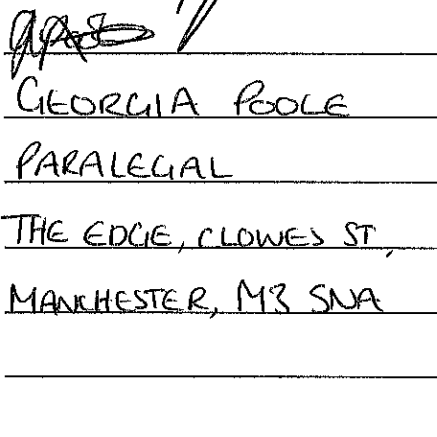 GEORGIA POOLE
PARALEGAL
THE EDGE, CLOWES ST,
MANCHESTER, M3 5NA